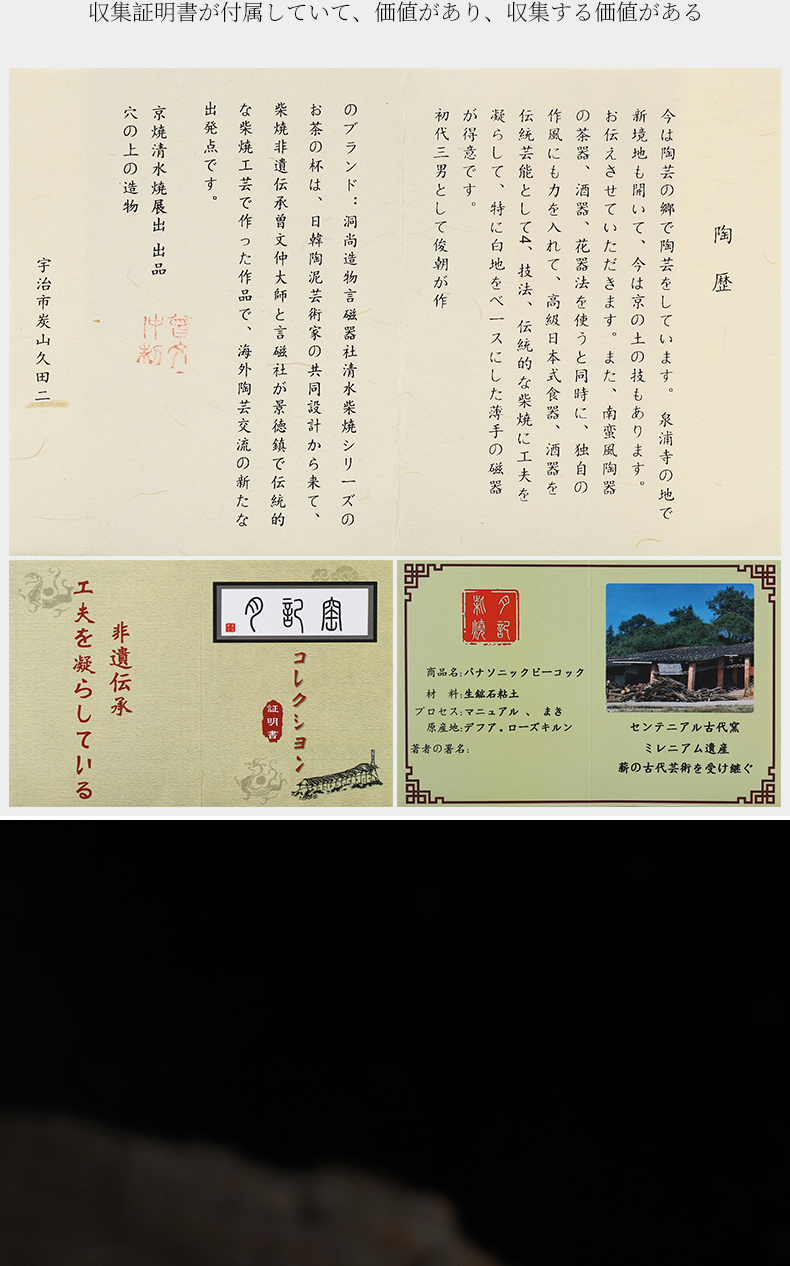 収集証明書が付属していて、価値があり、収集する価値がある
陶歴
今は陶芸の郷で陶芸をしています。泉浦寺の地で
新境地も開いて、今は京の土の技もあります。
お伝えさせていただきます。また、南蛮風陶器
の茶器、酒器、花器法を使うと同時に、独自の
作風にも力を入れて、高級日本式食器、酒器を
伝統芸能として4、技法、伝統的な柴焼に工夫を
凝らして、特に白地をベースにした薄手の磁器
が得意です。
初代三男として俊朝が作
のブランド：洞尚造物言磁器社清水柴焼シリーズの
お茶の杯は、日韓陶泥芸術家の共同設計から来て、
柴焼非遺伝承曽文仲大師と言磁社が景徳鎮で伝統的
な柴焼工芸で作った作品で、海外陶芸交流の新たな
出発点です。
京焼清水焼展出 出品
穴の上の造物
宇治市炭山久田二
非遺伝承
工夫を凝らしている
月記窑
コレクション
証明書
月記
柴燒
商品名:パナソニックピーコック
材 料:生鉱石粘土
プロセス:マニュアル 、 まき
原産地:デフア。ローズキルン
著者の署名:
センテニアル古代窯
ミレニアム遺産
薪の古代芸術を受け継ぐ